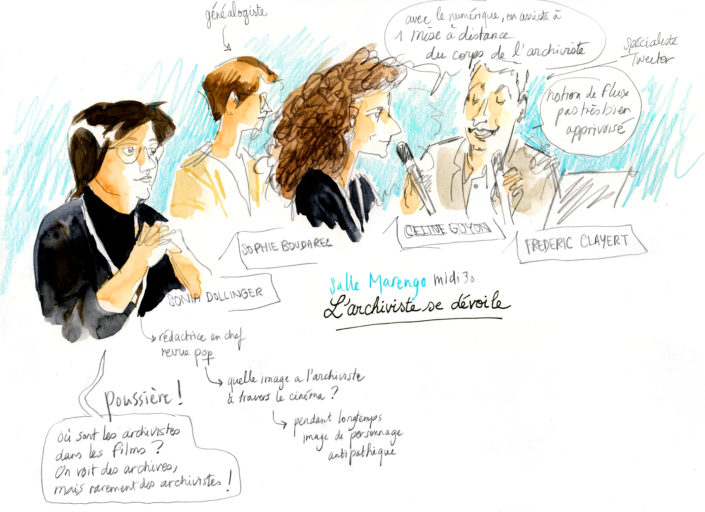 généalogiste
avec le numérique, on assiste à
1 mise à distance
du corps de l'archiviste
spécialiste
Twitter
notion de fluxe
pas très bien
apprivoisé
CELINE GUYON
FREDERIC CLAVERT
SOPHIE BOUDAREL
SONIA DOLLINGER
Salle Marengo midi 30
L'archiviste se dévoile
rédactrice en chef
revue pop
quelle image a l'archiviste
à travers le cinéma ?
pendant longtemps
image de personnage
antipathique
poussière !
où sont les archivistes
dans les films ?
On voit des archives,
mais rarement des archivistes !